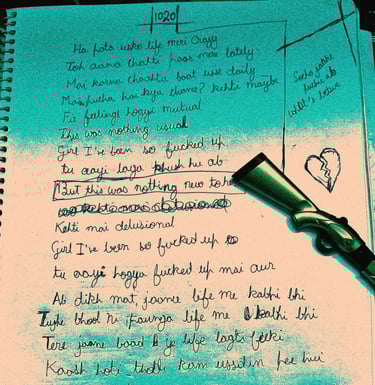 1020
Ha pata usko life meri Crazy
Toh aana chahti paas meri lately
Mai karna chahta baat usse daily
Main pucha hai kya chance? kehti maybe
Ki feelings hogyi mutual
This was nothing usual
Girl I've been so fucked up
tu aayi laga khush hu ab
But this was nothing new to her
Kehti mai delusional
Girl I've been so fucked up
tu aayi hogya fucked up mai aur
Ab dikh mat jaana life me kabhi bhi
Tujhe bhool ni paunga life me kabhi bhi
Tere jaane baad ye life lagti feeki
Kaash hoti thodi kam ussdin pee hui
Socho
ab
what's